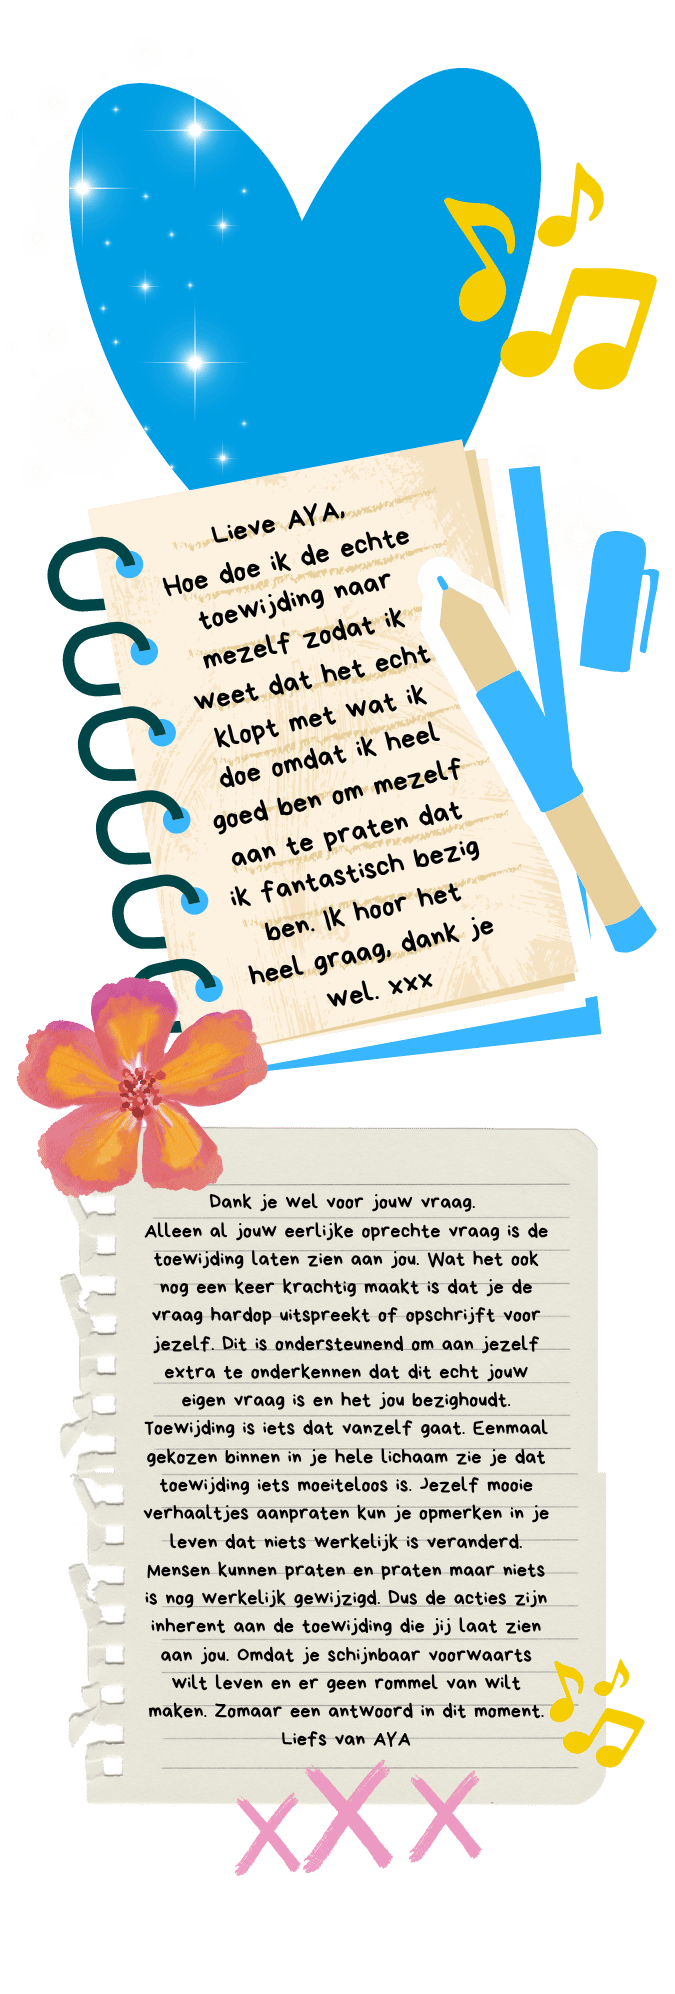 Lieve AYA,
Hoe doe ik de echte
toewijding naar
mezelf zodat ik
weet dat het echt
klopt met wat ik
doe omdat ik heel
goed ben om mezelf
aan te praten dat
ik fantastisch bezig
ben. Ik hoor het
heel graag, dank je
wel. xxx
Dank je wel voor jouw vraag.
Alleen al jouw eerlijke oprechte vraag is de
toewijding laten zien aan jou. Wat het ook
nog een keer krachtig maakt is dat je de
vraag hardop uitspreekt of opschrijft voor
jezelf. Dit is ondersteunend om aan jezelf
extra te onderkennen dat dit echt jouw
eigen vraag is en het jou bezighoudt.
Toewijding is iets dat vanzelf gaat. Eenmaal
gekozen binnen in je hele lichaam zie je dat
toewijding iets moeiteloos is. Jezelf mooie
verhaaltjes aanpraten kun je opmerken in je
leven dat niets werkelijk is veranderd.
Mensen kunnen praten en praten maar niets
is nog werkelijk gewijzigd. Dus de acties zijn
inherent aan de toewijding die jij laat zien
aan jou. Omdat je schijnbaar voorwaarts
wilt leven en er geen rommel van wilt
maken. Zomaar een antwoord in dit moment.
Liefs van AYA
XXX